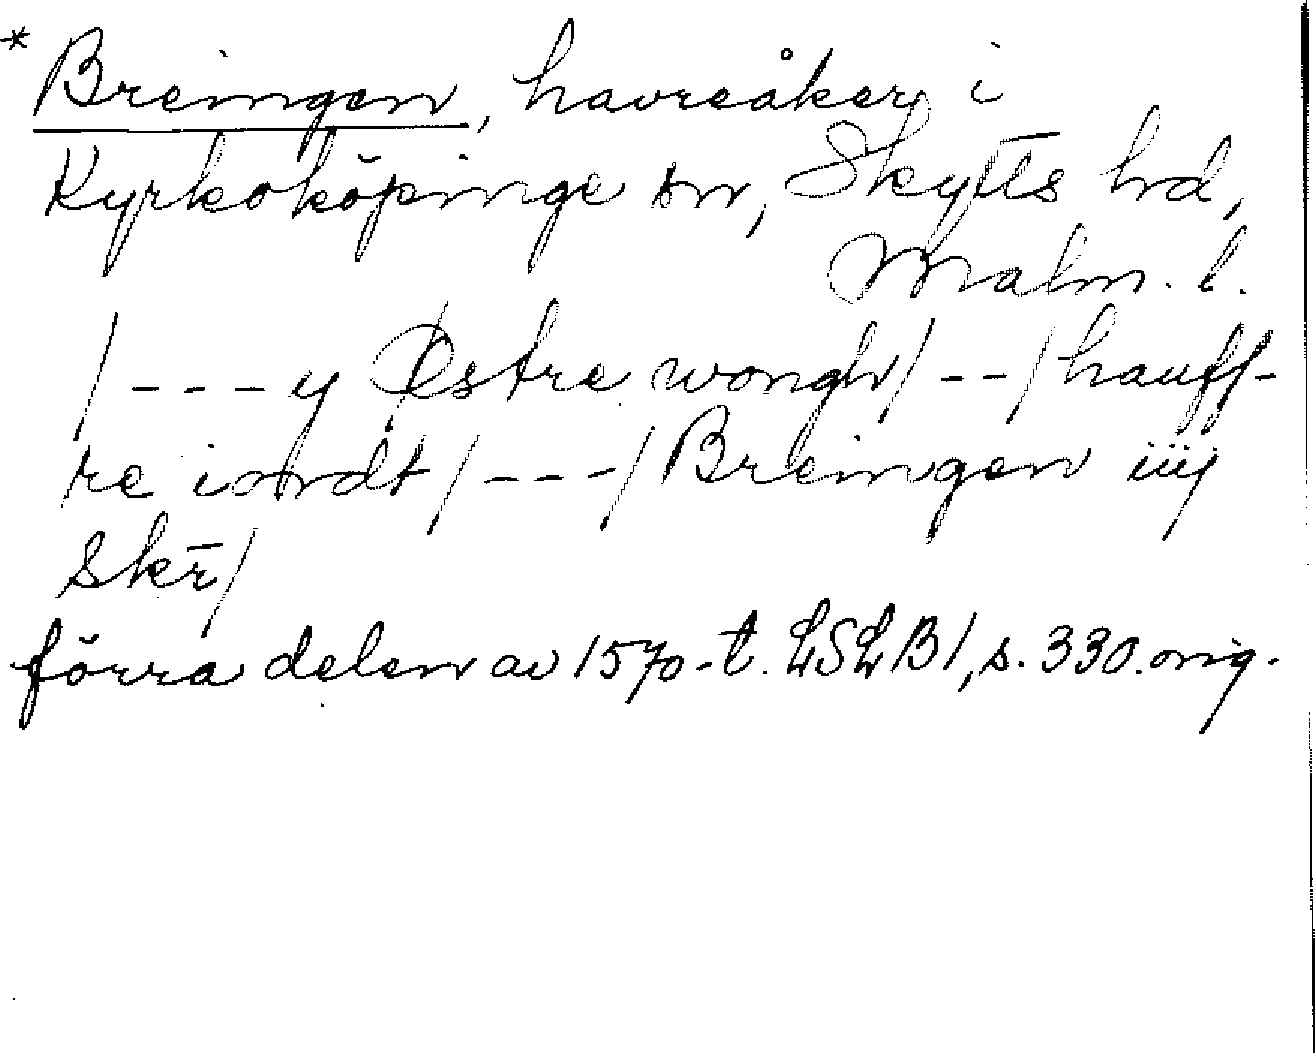 * Breingen, havreåker i
Kyrkoköpinge sn, Skytts hd,
Malm. l.
/---y Østre wongh/--/hauff-
re iordt/---/Breingen iiij
Skr̄/
förra delen av 1570-t. LSLB1, s. 330. orig.